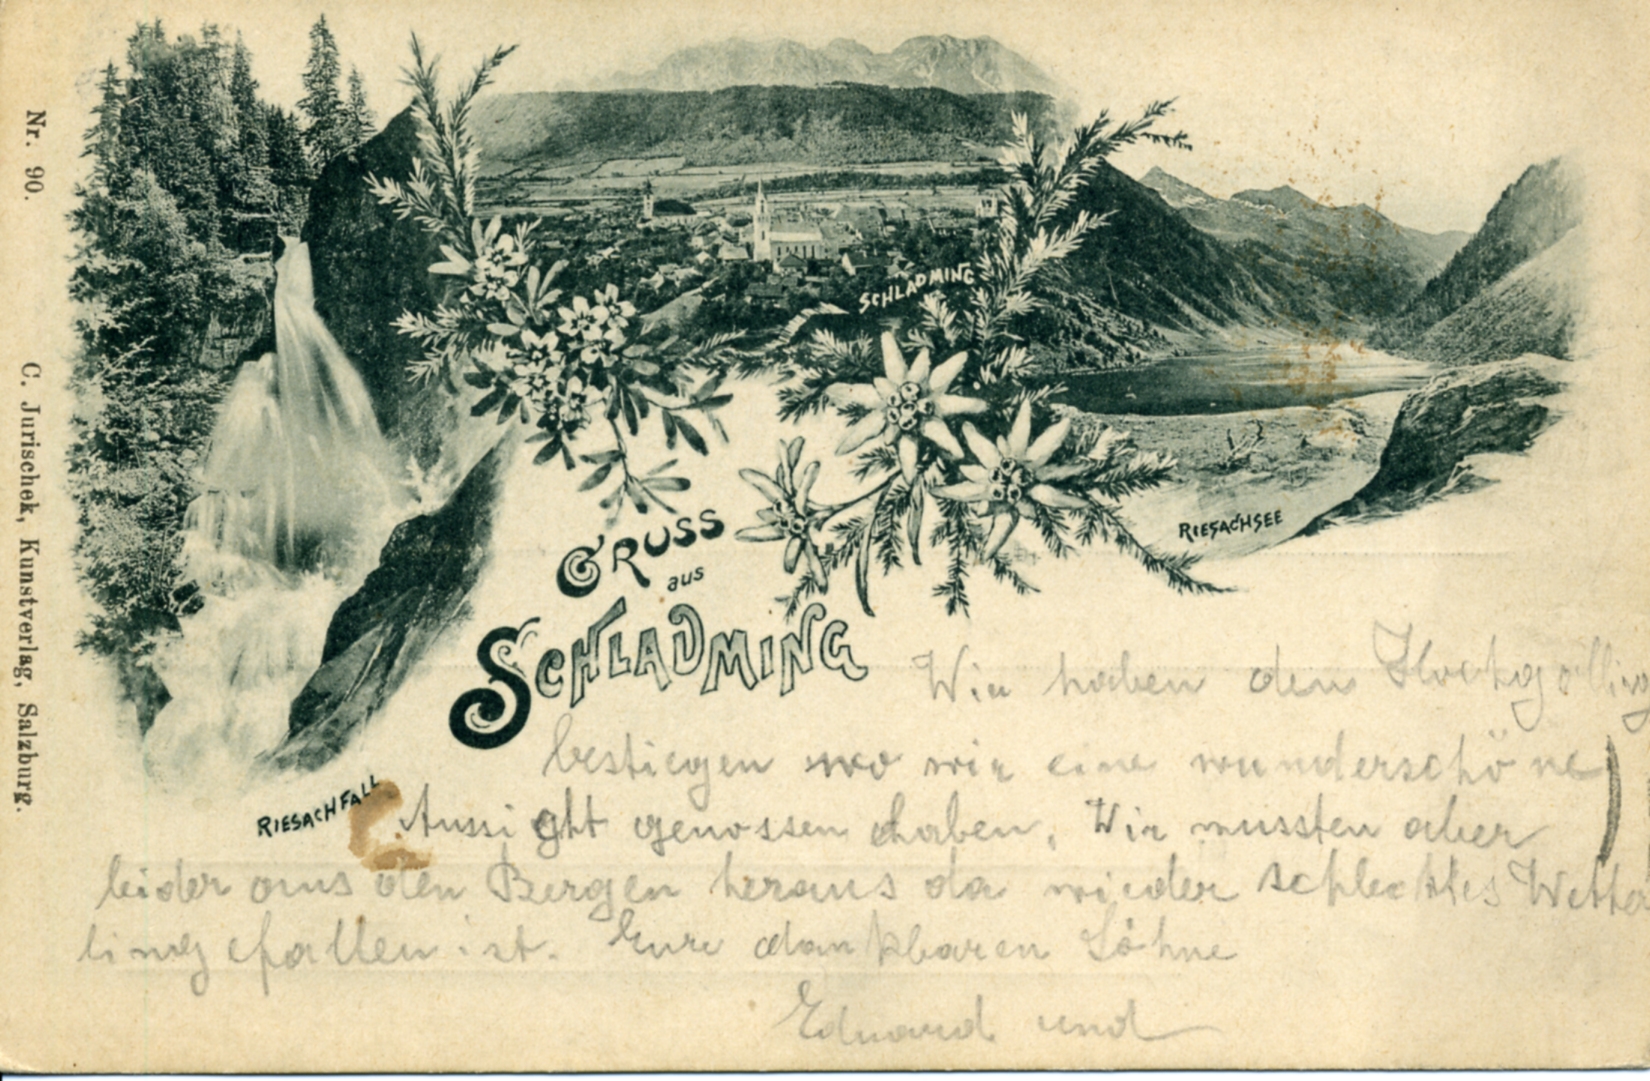 Nr. 90.
C. Jurischek, Kunstverlag, Salzburg.
SCHLADMING
RIESACHSEE
GRUSS
aus
SCHLADMING
RIESACHFALL
Wir haben den Hochgolling
bestiegen wo wir eine wunderschöne
Aussicht genossen haben. Wir mussten aber
leider aus den Bergen heraus da wieder schlechtes Wetter
eingefallen ist. Eure dankbaren Söhne
Eduard und